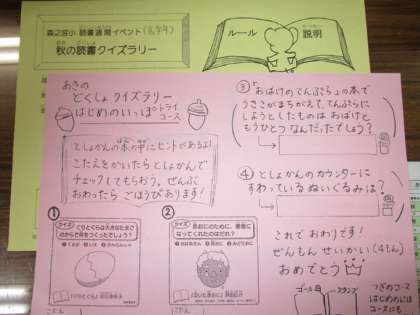 森之宮小 読書週間イベント(高学年)
秋の読書クイズラリー
ルール
説明
あきの
どくしょクイズラリー
はじめのいっぽ トライ
コース
としょかんの本の中にヒントがあるよ!
こたえをかいたらとしょかんで
チェックしてもらおう。ぜんぶ
おわったら ごほうびあります!
①
クイズ
ぐりとぐらは大きなたまご
のからで何をつくったでしょう?
②
クイズ
③「おばけのてんぷら」の本で
うさこがまちがえて、てんぷらに
しようとしたものは おばけと
もうひとつ なんだったでしょう?
④ としょかんの カウンターに
すわっている ぬいぐるみは?
これで おわりです!
ぜんもん せいかい(4もん)
おめでとう
ゴール日
スタンプ
つぎのコース
はじめのには
コースにも